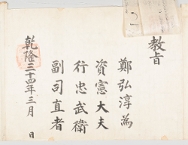 教旨
鄭弘淳為
資憲大夫
行忠武衛
副司直者
乾隆三十四年三月　日